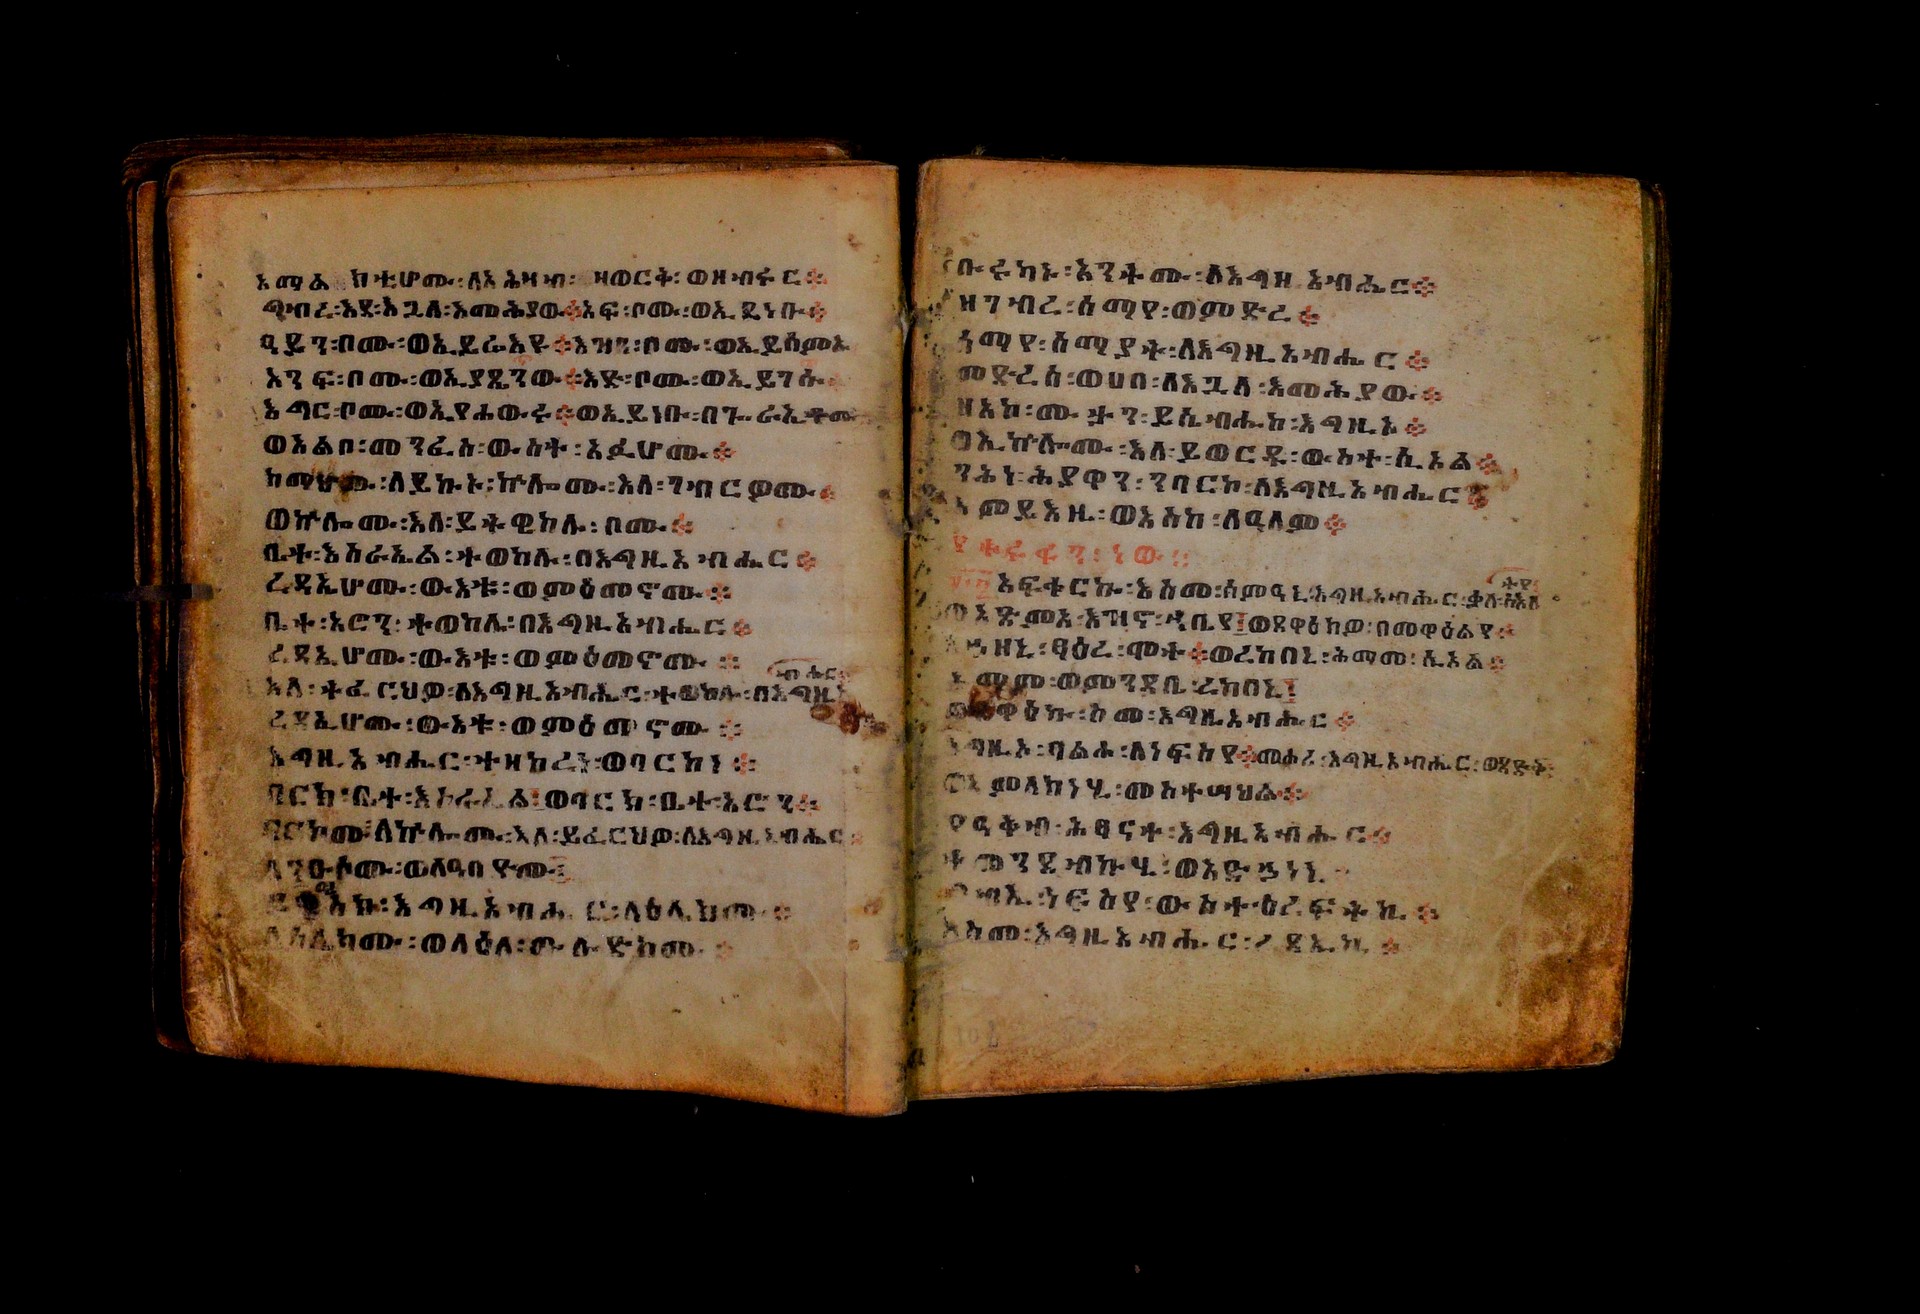 አማልክቲሆሙ፡ለአሕዛብ፡ ዘወርቅ፡ወዘብሩር፨
ግብረ፡እደ፡እጓለ፡እመሕያው፨አፍ፡ቦሙ፡ወኢይነቡ፨
ዓይን፡በሙ፡ወኢይሬእዩ፨እዝን፡ቦሙ፡ወኢይሰምዑ
አንፍ፡በሙ፡ወኢያጼንው፨እድ፡ቦሙ፡ወኢይገሱ፨
እግር፡ቦሙ፡ወኢየሐውሩ፨ወኢይነቡ፡በጉራኢቶሙ
ወአልቦ፡መንፈስ፡ውስተ፡አፉሆሙ፨
ከማሆሙ፡ለይኩኑ፡ኵሎሙ፡እለ፡ገብርዎሙ፨
ወኵሎሙ፡እለ፡ይትዌከሉ፡ቦሙ፨
ቤተ፡እስራኤል፡ተወከሉ፡በእግዚአብሔር፨
ረዳኢሆሙ፡ውእቱ፡ወምዕመኖሙ፨
ቤተ፡አሮን፡ተወከሉ፡በእግዚአብሔር፨
ረዳኢሆሙ፡ውእቱ፡ወምዕመኖሙ፨
ብሔር፡
እለ፡ትፈርህዎ፡ለእግዚአብሔር፡ተወከሉ፡በእግዚአ
ረዳኢሆሙ፡ውእቱ፡ወምዕመኖሙ፨
እግዚአብሔር፡ተዘከረነ፡ወባርከነ፨
ባርከ፡ቤተ፡እስራኤል፡ወባርከ፡ቤተ፡አሮን፨
ባርኮሙ፡ለኵሎሙ፡እለ፡ይፈርህዎ፡ለእግዚአብሔር፨
ለንዑሶሙ፡ወለዓበዮሙ
እግዚአብሔር፡ላዕሌክሙ፨
ላዕሌክሙ፡ወላዕለ፡ውሉድክሙ፨
ቡሩካኑ፡አንትሙ፡ለእግዚአብሔር፨
ዘገብረ፡ሰማየ፡ወምድረ፨
ሰማየ፡ሰማያት፡ለእግዚአብሔር፨
ምድረሰ፡ወሀበ፡ለእጓለ፡እመሕያው፨
ዘአኮ፡ሙታን፡ይሴብሑከ፡እግዚኦ፨
ወኢኵሎሙ፡እለ፡ይወርዱ፡ውስተ፡ሲኦል፨
ንሕነ፡ሕያዋን፡ንባርኮ፡ለእግዚአብሔር፨
እምይእዜ፡ወእስከ፡ለዓለም፨
ትየ፡
አፍቀርኩ፡እስመ፡ሰምዓኒ፡እግዚአብሔር፡ቃለ፡ስእለ
ወአጽምአ፡እዝኖ፡ዲቤየ፡ወጸዋዕክዎ፡በመዋዕልየ፨
አኀዘኒ፡ፃዕረ፡ሞት፨ወረከበኒ፡ሕማመ፡ሲኦል፨
ወምንዳቤ፡ረከበኒ
ወጸዋዕኩ፡ስመ፡እግዚአብሔር፨
እግዚኦ፡ባልሓ፡ለነፍስየ፨መሐሪ፡እግዚአብሔር፡ወጻድቅ፨
ወአምላክነሂ፡መስተሣህል፨
የዓቅብ፡ሕፃናተ፡እግዚአብሔር፨
ተመንደብኩሂ፡ወአድኀነኒ፨
ግብኢ፡ነፍስየ፡ውስተ፡ዕረፍትኪ፨
እስመ፡እግዚአብሔር፡ረዳኢኪ፨